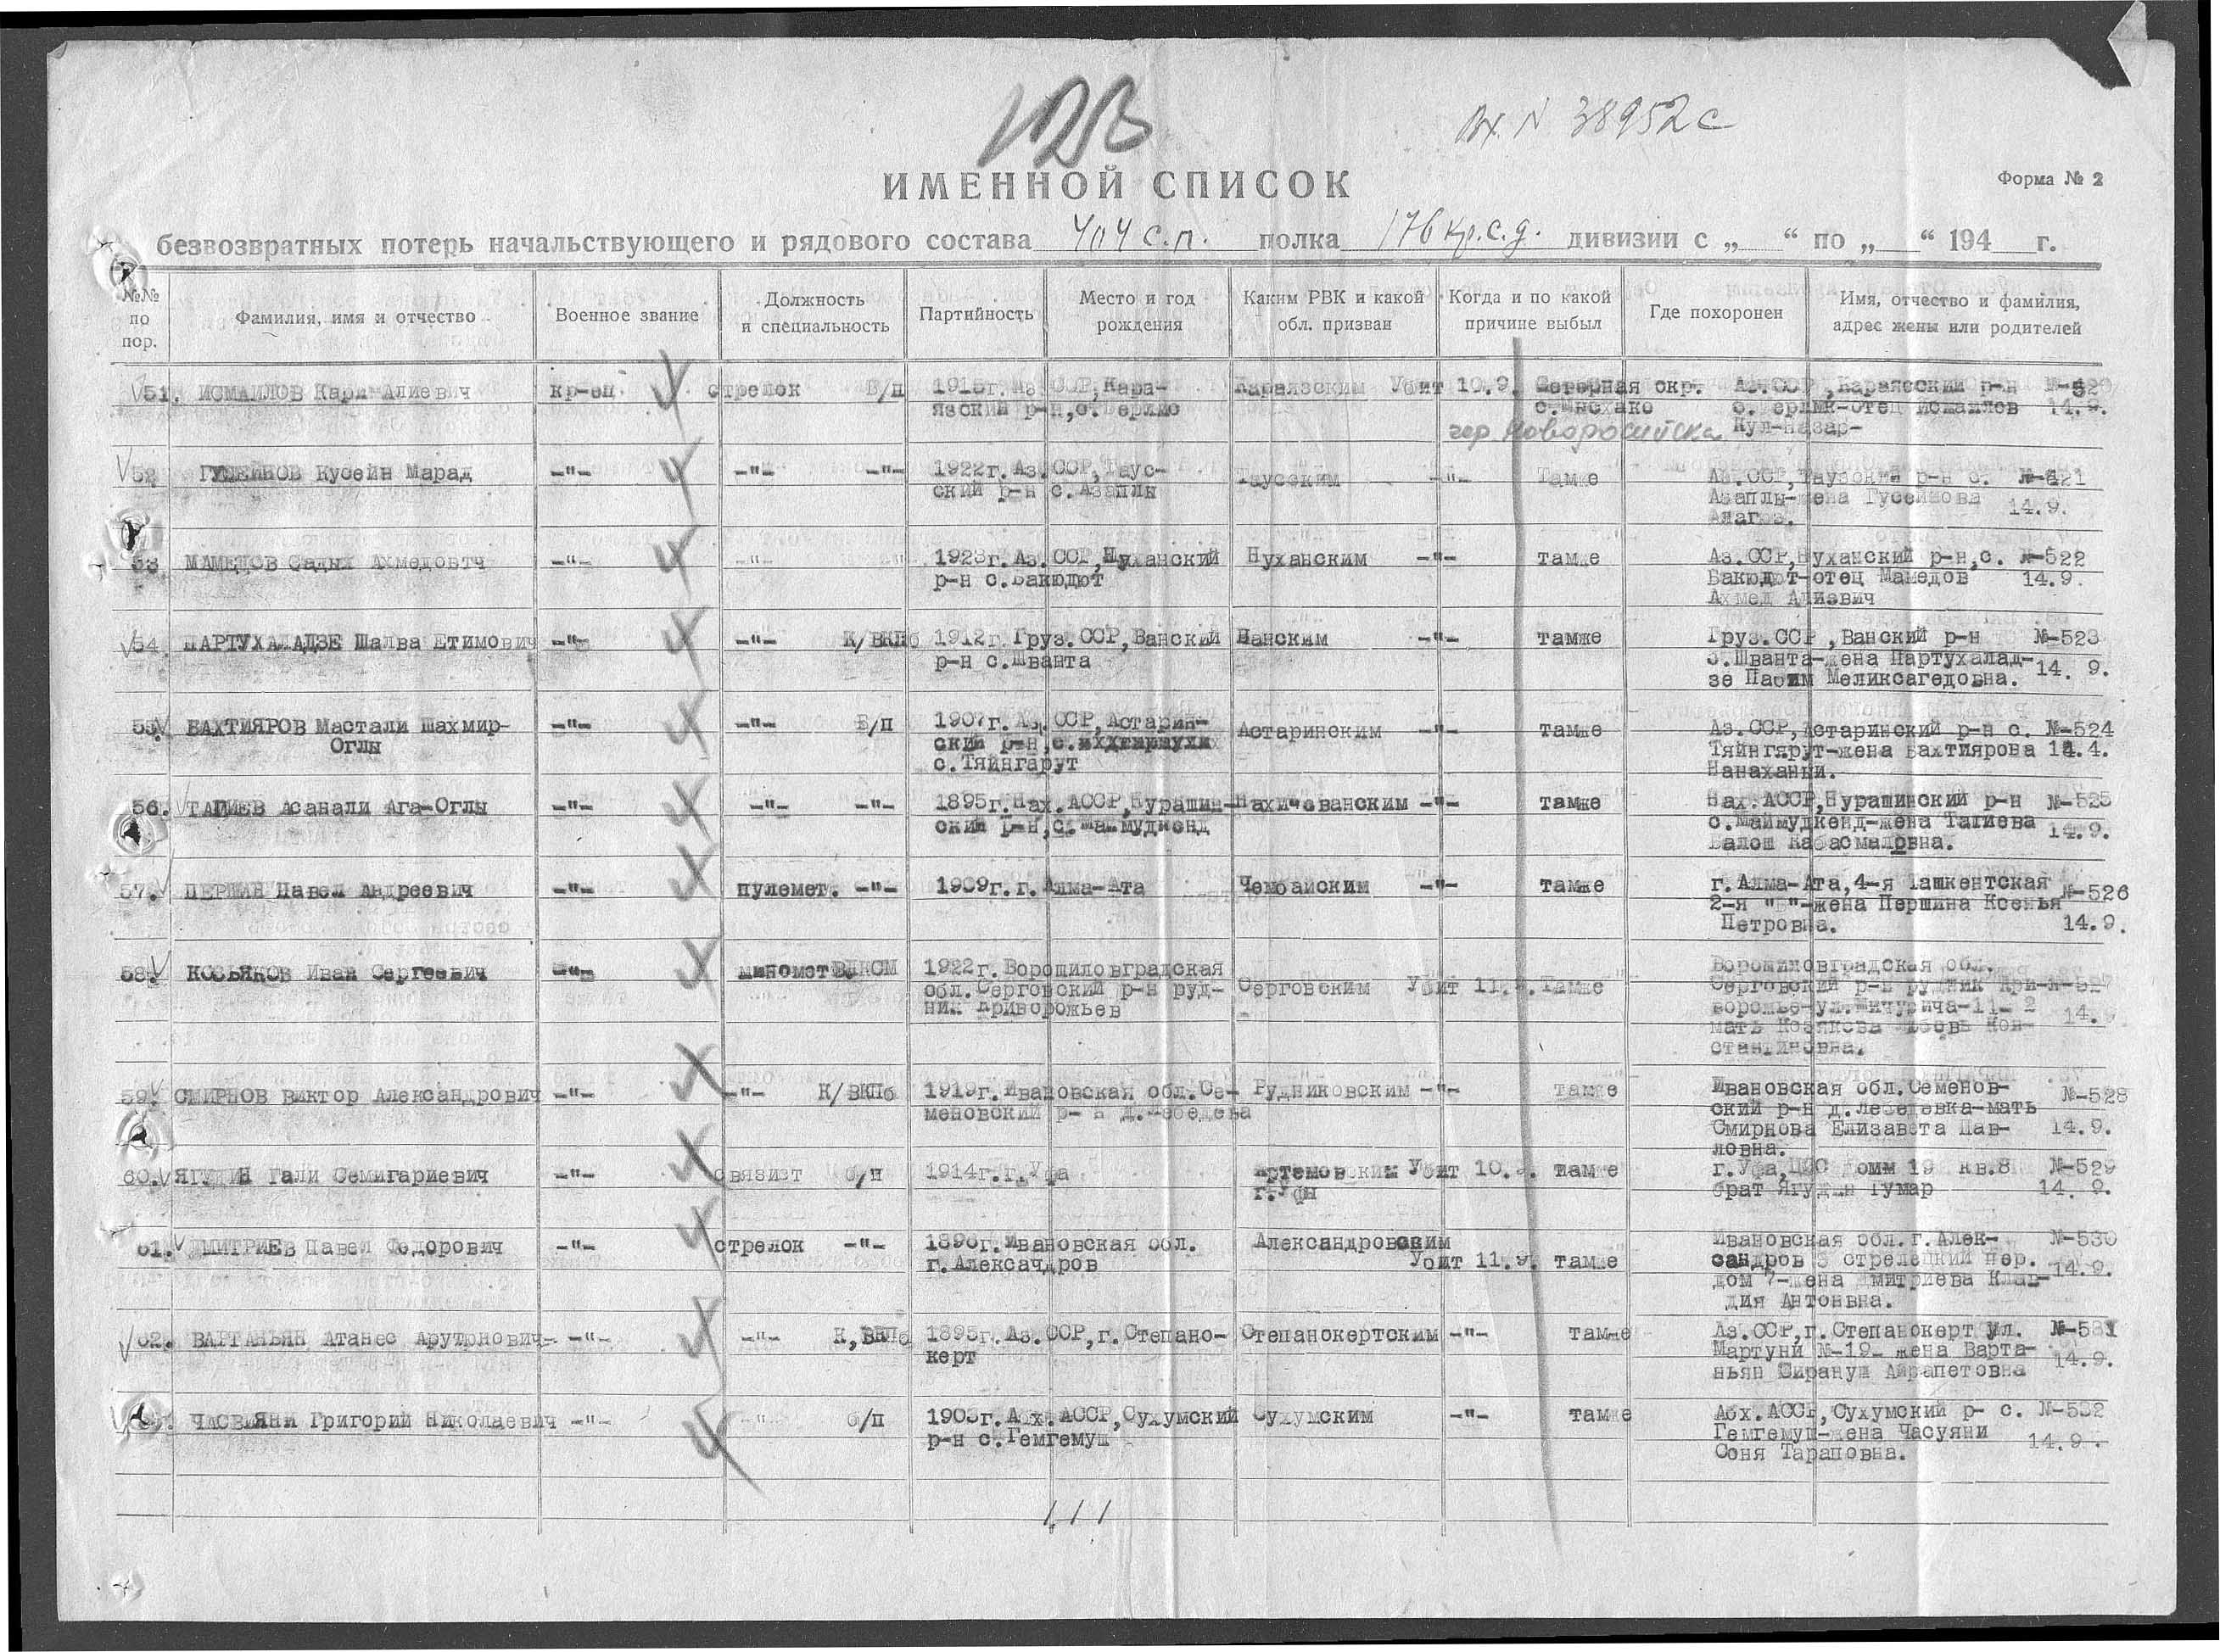 вх. № 38952с
ИМЕННОЙ СПИСОК
Форма № 2
безвозвратных потерь начальствующего и рядового состава 404 с.п. полка 176 кр.с.д. дивизии с „ “ по „ “ 194 г.
№№ по пор. Фамилия, имя и отчество Военное звание Должность и специальность Партийность Место и год рождения Каким РВК и какой обл. призван Когда и по какой причине выбыл Где похоронен Имя, отчество и фамилия, адрес жены или родителей
51. ИСМАИЛОВ Кари Алиевич кр-ец стрелок Б/п 1915г. Аз. ССР, Кара- Караязским Убит 10.9. Северная окр. Аз. ССР, Караязский р-н №-520
язский р-н, с. с. Мысхако отец Исмаилов 14.9.
гор Новороссийска Кул-Назар-
52 ГУСЕЙНОВ Кусейн Марад -"- -"- -"- 1922г. Аз. ССР, Таус- Таусским -"- Тамже Аз. ССР, Таузский р-н с. №-521
ский р-н с. Азаплы Азаплы-жена Гусейнова 14.9.
Алагоз.
53 МАМЕДОВ Садых Ахмедовтч -"- -"- " 1923г. Аз. ССР, Нуханский Нуханским -"- тамже Аз. ССР, Нуханский р-н, с. №-522
р-н с. Бакюдют Бакюдют-отец Мамедов 14.9.
Ахмед Алиэвич
54 ПАРТУХАЛАДЗЕ Шалва Етимович -"- -"- К/ВКПб 1912г. Груз. ССР, Ванский Ванским -"- тамже Груз. ССР, Ванский р-н №-523
р-н с. Шванта с. Шванта-жена Партухалад- 14. 9.
зе Пасим Меликсагедовна.
55. БАХТИЯРОВ Мастали Шахмир- -"- -"- Б/п 1907г. Аз. ССР, Астарин- Астаринским -"- тамже Аз. ССР, Астаринский р-н с. №-524
Оглы ский р-н, с. Тяйнгярут-жена Бахтиярова 14.4.
с. Тяйнгарут Нанаханым.
56. ТАГИЕВ Асанали Ага-Оглы -"- -"- -"- 1895г. Нах. АССР, Нурашин- Нахичеванским -"- тамже Нах. АССР, Нурашинский р-н №-525
ский р-н, с. Маймудкенд с. Маймудкенд-жена Тагиева 14.9.
Балош Кабасмаловна.
57. ПЕРШИН Павел Андреевич -"- пулемет. -"- 1909г. г. Алма-Ата тамже г. Алма-Ата, 4-я Ташкентская №-526
2-я " "-жена Першина Ксенья
Петровна. 14.9.
58. КОЗЬЯКОВ Иван Сергеевич -"- миномет ВЛКСМ 1922г. Ворошиловградская Ворошиловградская обл.
обл. Серговский р-н руд- Серговским Убит 11.9. Тамже Серговский р-н рудник Кри- №-527
ник Криворожьев ворожье-ул. Мичурича-11- 2 14.
мать Козякова Любовь Кон-
стантиновна.
59. СМИРНОВ Виктор Александрович -"- -"- К/ВКПб 1919г. Ивановская обл. Се- Рудниковским -"- тамже Ивановская обл. Семенов- №-528
меновский р- н д. Лебедева ский р-н д. лебедевка-мать
Смирнова Елизавета Пав- 14.9.
ловна.
60. ЯГУДИН Гали Семигариевич -"- связист б/п 1914г. г. Уфа Артемовским Убит 10.9. тамже г. Уфа, ЦЭС домм 19 кв. 8 №-529
г. Уфы брат Ягудин Гумар 14. 9.
61. ДМИТРИЕВ Павел Федорович -"- стрелок -"- 1896г. Ивановская обл. Александровским Ивановская обл. г. Алек- №-530
г. Александров Убит 11.9. тамже сандров 3 стрелецкий пер. 14.9.
дом 7-жена Дмитриева Клав-
дия Антоввна.
62. ВАРТАНЬЯН Атанес Арутюнович- -"- -"- К,ВКПб 1895г. Аз. ССР, г. Степано- Степанокертским -"- тамже Аз. ССР, г. Степанокерт ул. №-531
керт Мартуни №-19- жена Варта- 14.9.
ньян Сирануш Айрапетовна
63. ЧАСВИЯНИ Григорий Николаевич -"- " б/п 1903г. Абх. АССР, Сухумский Сухумским -"- тамже Абх. АССР, Сухумский р- с. №-532
р-н с. Гемгемуш Гемгемуш-жена Часуяни 14.9.
Соня Тараповна.